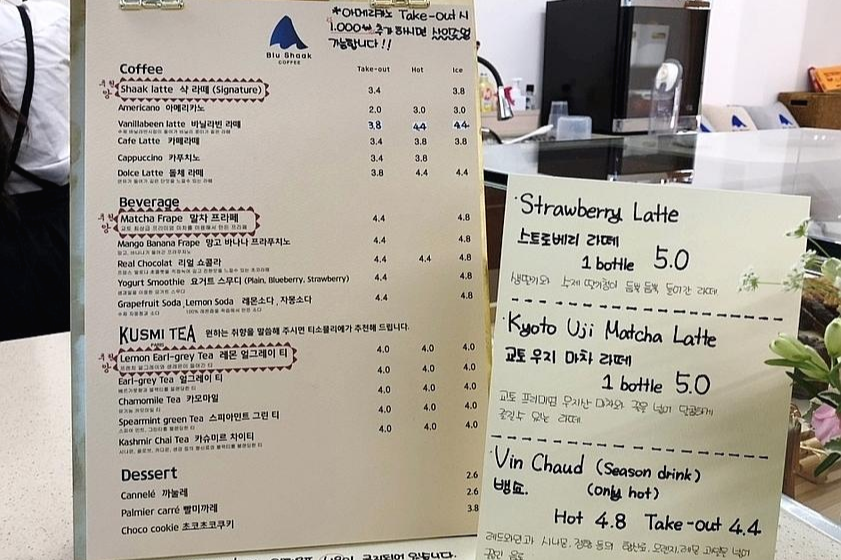 *아메리카노 Take-out 시
1.000원 추가 하시면 샷인쇼업
가능합니다!!
Blu Shaak
COFFEE
Coffee Take-out Hot Ice
추천
Shaak latte 샥 라떼 (Signature) 3.4 3.8
Americano 아메리카노 2.0 3.0 3.0
Vanillabeen latte 바닐라빈 라떼 3.8 4.4 4.4
Cafe Latte 카페라떼 3.4 3.8 3.8
Cappuccino 카푸치노 3.4 3.8
Dolce Latte 돌체 라떼 3.8 4.4 4.4
Beverage
추천
Matcha Frape 말차 프라페 4.4 4.8
Mango Banana Frape 망고 바나나 프라푸치노 4.4 4.8
Real Chocolat 리얼 쇼콜라 4.4 4.4 4.8
Yogurt Smoothie 요거트 스무디 (Plain, Blueberry, Strawberry) 4.4 4.8
Grapefruit Soda, Lemon Soda 레몬소다, 자몽소다 4.4 4.8
KUSMI TEA 원하는 취향을 말씀해 주시면 티소믈리에가 추천해 드립니다.
PARIS
추천
Lemon Earl-grey Tea 레몬 얼그레이 티 4.0 4.0 4.0
Earl-grey Tea 얼그레이 티 4.0 4.0 4.0
Chamomile Tea 카모마일 4.0 4.0 4.0
Spearmint green Tea 스피아민트 그린 티 4.0 4.0 4.0
Kashmir Chai Tea 카슈미르 차이티 4.0 4.0 4.0
Dessert
Cannelé 까눌레 2.6
Palmier carré 빨미까레 2.6
Choco cookie 초코초코쿠키 3.8
·Strawberry Latte
스트로베리 라떼
1 bottle 5.0
·Kyoto Uji Matcha Latte
교토 우지 마차 라떼
1 bottle 5.0
·Vin Chaud (Season drink)
뱅쇼. (only hot)
Hot 4.8 Take-out 4.4